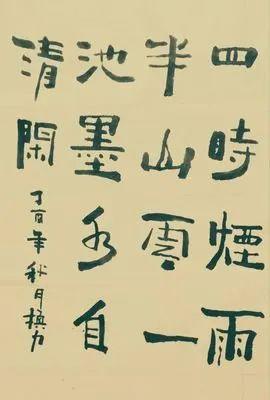 四時煙雨
半山雲一
池墨水自
清閑
丁亥年秋月力